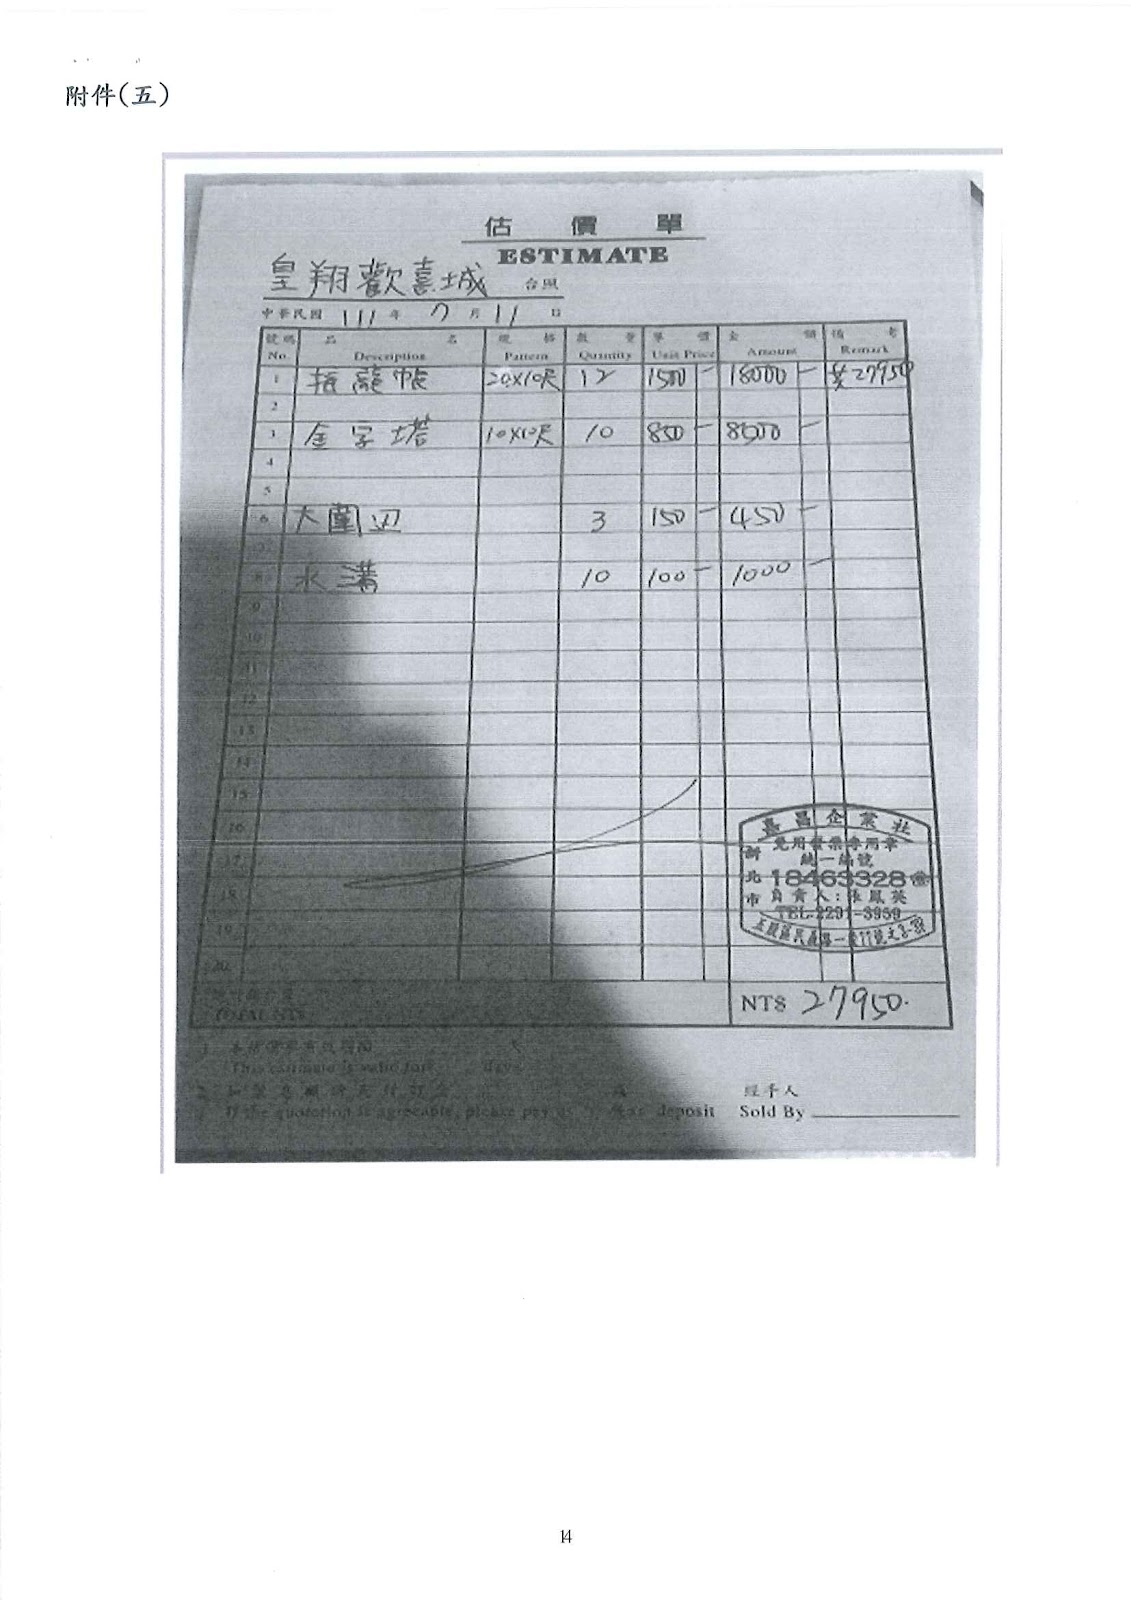 附件(五)
估價單
ESTIMATE
皇翔歡喜城 台照
中華民國 111 年 7 月 11 日
號碼 品名 規格 數量 單價 金額 備考
No. Description Pattern Quantity Unit Price Amount Remark
1 帳 20x10尺 12 1500 — 18000 — 共27950
2
3 金字塔 10x10尺 10 850 — 8500 —
4
5
6 大圍辺 3 150 — 450 —
7
8 水溝 10 100 — 1000 —
9
10
11
12
13
14
15
16
17
18
19
20
嘉昌企業社
免用發票專用章
新北市
統一編號
18463328
負責人:張鳳英
TEL:2291-3959
五股區民義路一段11號之
TOTAL NT$
NT$ 27950.
1. 本估價單有效期間 天
This estimate is valid for days
2. 如蒙惠顧請先付訂金 成 經手人
If the quotation is agreeable, please pay as % as deposit Sold By
14